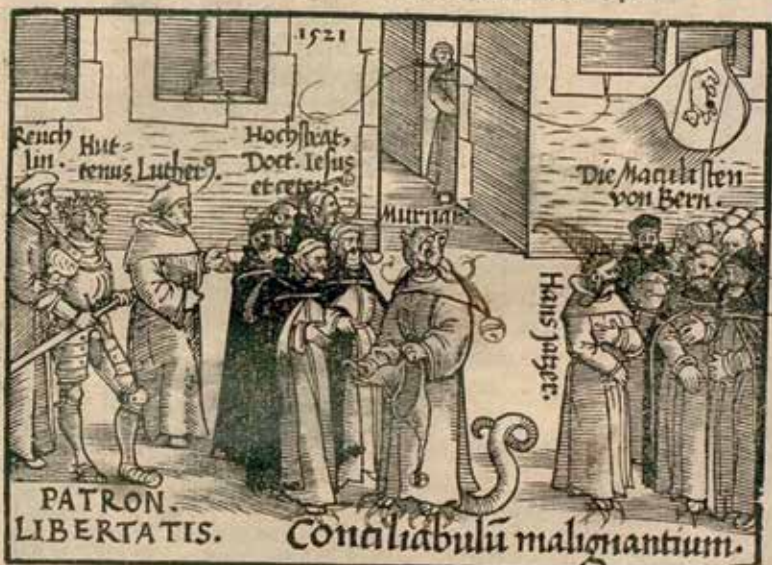 1521
Reüch
lin.
Hut=
tenus.
Luther9.
Hochstrat,
Doct. Iesus
et ceter.
Murnar.
Die Maculisten
von Bern.
Hans Jätzer.
PATRON.
LIBERTATIS.
Conciliabulū malignantium.